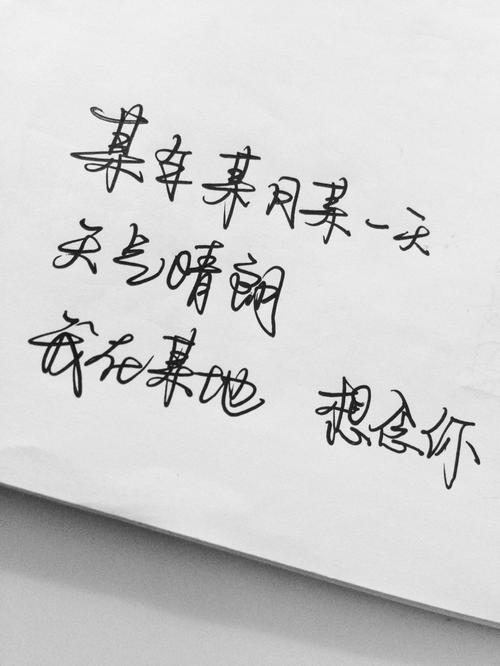 某年某月某一天
天气晴朗
我在某地 想念你